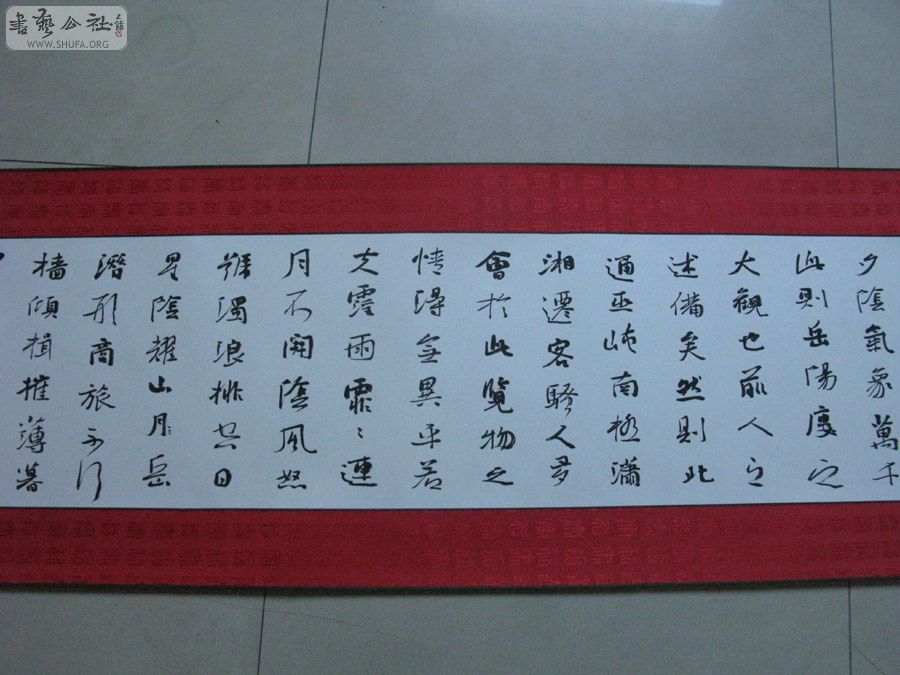 書藝公社
WWW.SHUFA.ORG
夕陰氣象萬千
此則岳陽廔之
大觀也前人之
述備矣然則北
通巫峽南極瀟
湘遷客騷人多
會於此覽物之
情得無異乎若
夫霪雨霏〻連
月不開陰風怒
號濁浪排空日
星陰耀山月岳
潛形商旅不行
檣傾楫摧薄暮